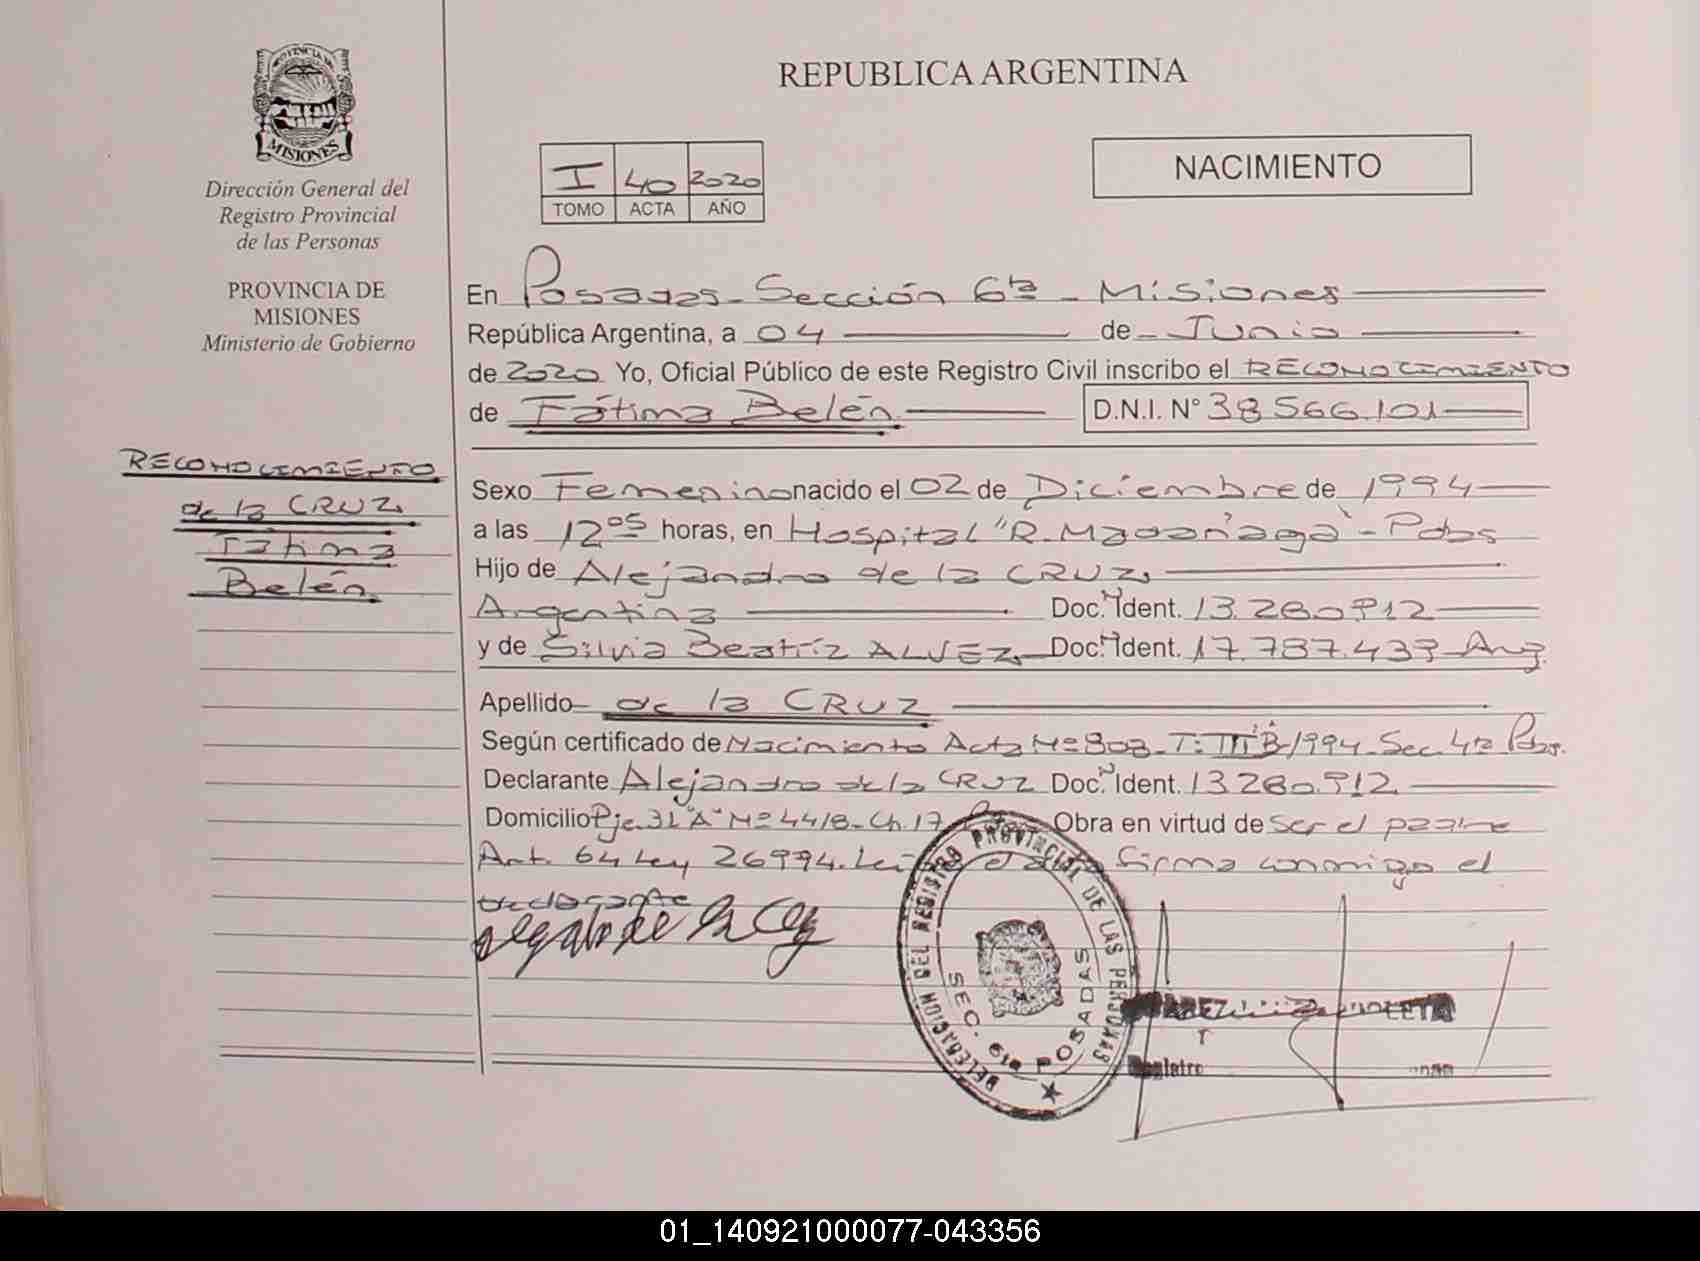 PROVINCIA DE
MISIONES
Dirección General del
Registro Provincial
de las Personas
PROVINCIA DE
MISIONES
Ministerio de Gobierno
RECONOCIMIENTO
de la CRUZ,
Fátima
Belén
REPUBLICA ARGENTINA
I 40 2020
TOMO ACTA AÑO
NACIMIENTO
En Posadas - Sección 6ta - Misiones
República Argentina, a 04 de Junio
de 2020 Yo, Oficial Público de este Registro Civil inscribo el RECONOCIMIENTO
de Fátima Belén D.N.I. N° 38.566.101
Sexo Femenino nacido el 02 de Diciembre de 1994
a las 12 05 horas, en Hospital "R. Madariaga" - Pdas
Hijo de Alejandro de la CRUZ,
Argentina Doc. N Ident. 13.280.912
y de Silvia Beatríz ALVEZ, Doc. N Ident. 17.787.439 Arg.
Apellido de la CRUZ
Según certificado de Nacimiento Acta Nº 803 - T: III B/1994 - Sec. 4ta Pdas.
Declarante Alejandro de la CRUZ Doc. N Ident. 13.280.912
Domicilio Pje. 31 "A" Nº 4418 - Ch. 17 Obra en virtud de ser el padre
Art. 64 Ley 26994. firma conmigo el
declarante
DELEGACION DEL REGISTRO PROVINCIAL DE LAS PERSONAS
SEC. 6ta POSADAS
01_140921000077-043356